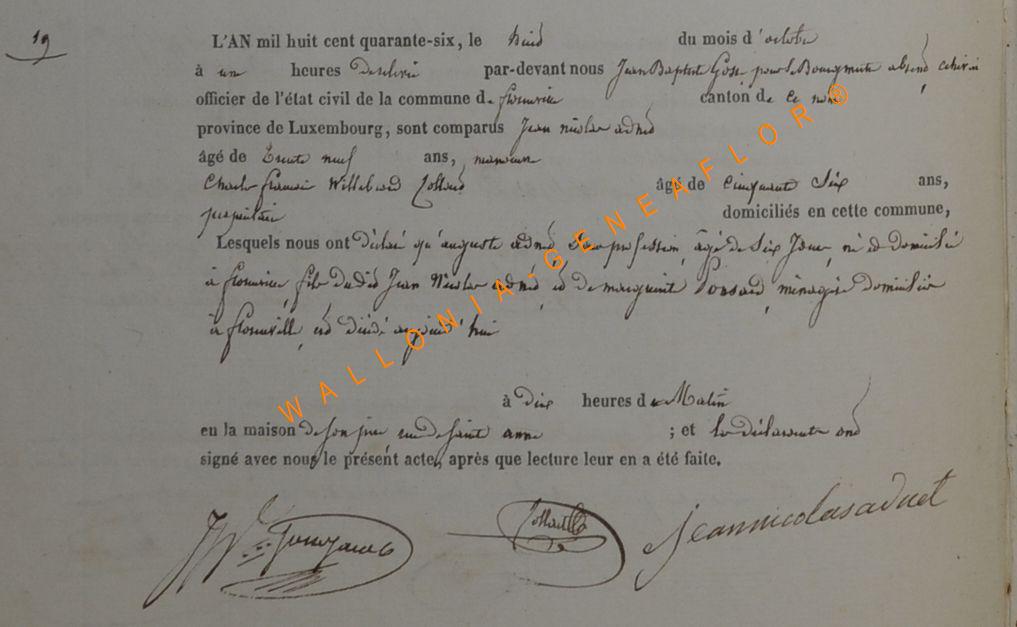 19
L'AN mil huit cent quarante-six, le huit du mois d'octobre
à une heures de relevée par-devant nous Jean Baptiste pour le Bourgmestre absent
officier de l'état civil de la commune de florenville canton de ce nom
province de Luxembourg, sont comparus Jean nicolas adnet
âgé de trente neuf ans, manœuvre
Charles françois Willebrord Collard âgé de cinquante Six ans,
propriétaire domiciliés en cette commune,
Lesquels nous ont déclaré qu'auguste adnet Sans profession, âgé de Six Jours, né et domicilié
à florenville fils dudit Jean Nicolas adnet et de marguerite Ponsard ménagère domiciliée
à florenville, est décédé aujourd'hui
à dix heures du Matin
en la maison de son père rue de sainte anne ; et les déclarants ont
signé avec nous le présent acte, après que lecture leur en a été faite.
Collard
jeannicolasadnet
WALLONIA-GENEAFLOR®